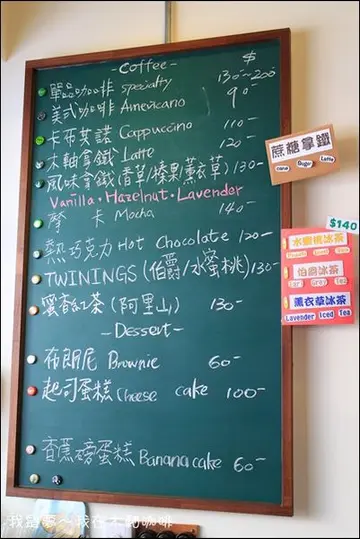 -Coffee- $
單品咖啡 specialty 130-200
美式咖啡 Americano 90-
卡布其諾 Cappuccino 110-
木軸拿鐵 Latte 120-
風味拿鐵(香草/榛果/薰衣草) 130-
Vanilla·Hazelnut·Lavender
摩 卡 Mocha 140-
熱巧克力 Hot Chocolate 120-
TWININGS(伯爵/水蜜桃) 130-
蜜香紅茶(阿里山) 130-
-Dessert-
布朗尼 Brownie 60-
起司蛋糕 cheese cake 100-
香蕉磅蛋糕 Banana cake 60-
蔗糖拿鐵
Cane Sugar Latte
$140
水蜜桃冰茶
伯爵冰茶
Earl Grey Tea
薰衣草冰茶
Lavender Iced Tea